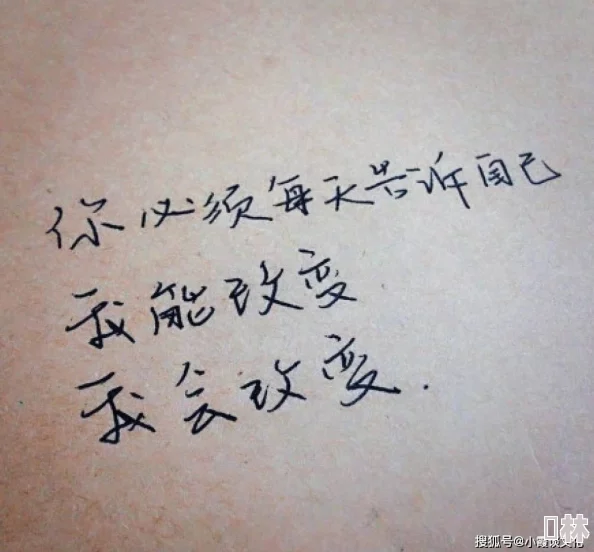 你必须每天告诉自己
我能改变
我会改变.
搜狐号@小霞
林